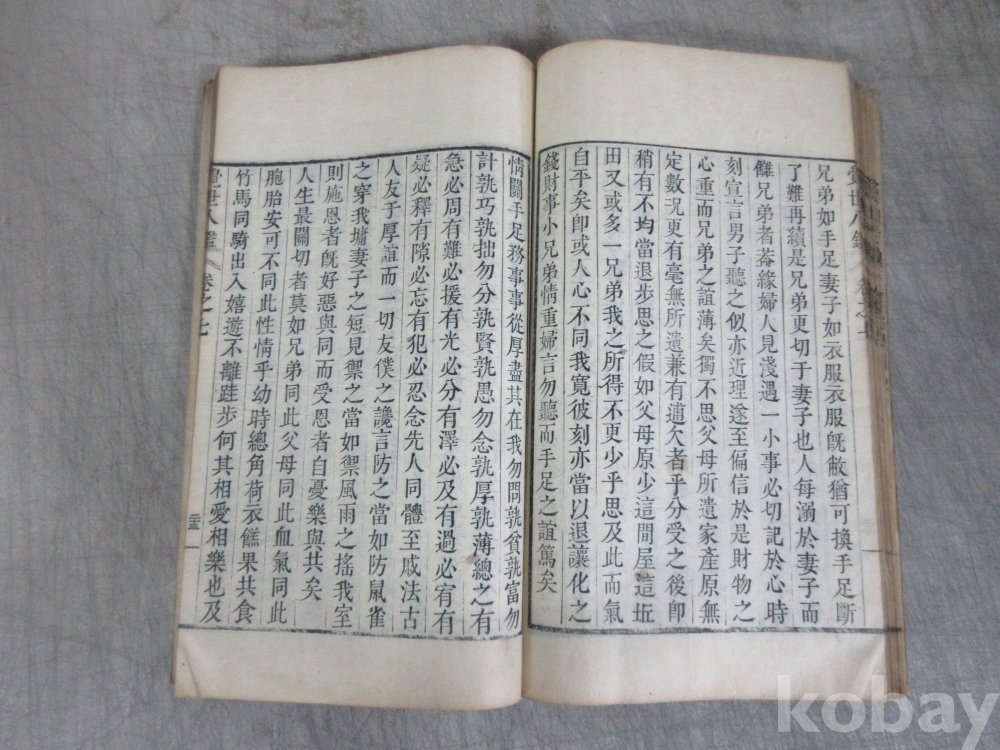 兄弟如手足妻子如衣服衣服旣敝猶可換手足斷
了難再續是兄弟更切于妻子也人每溺於妻子而
讎兄弟者葢緣婦人見淺遇一小事必切記於心時
刻宣言男子聽之似亦近理遂至偏信於是財物之
心重而兄弟之誼薄矣獨不思父母所遺家產原無
定數况更有毫無所遺兼有逋欠者乎分受之後卽
稍有不均當退步思之假如父母原少這間屋這坵
田又或多一兄弟我之所得不更少乎思及此而氣
自平矣卽或人心不同我寬彼刻亦當以退讓化之
錢財事小兄弟情重婦言勿聽而手足之誼篤矣
情關手足務事事從厚盡其在我勿問孰貧孰富勿
計孰巧孰拙勿分孰賢孰愚勿念孰厚孰薄總之有
急必周有難必援有光必分有澤必及有過必宥有
疑必釋有隙必忘有犯必忍念先人同體至戚法古
人友于厚誼而一切友僕之讒言防之當如防鼠雀
之穿我墉妻子之短見禦之當如禦風雨之搖我室
則施恩者旣好惡與同而受恩者自憂樂與共矣
人生最關切者莫如兄弟同此父母同此血氣同此
胞胎安可不同此性情乎幼時總角荷衣餻果共食
竹馬同騎出入嬉遊不離跬步何其相愛相樂也及
覺世八鑑 卷之七
kobay